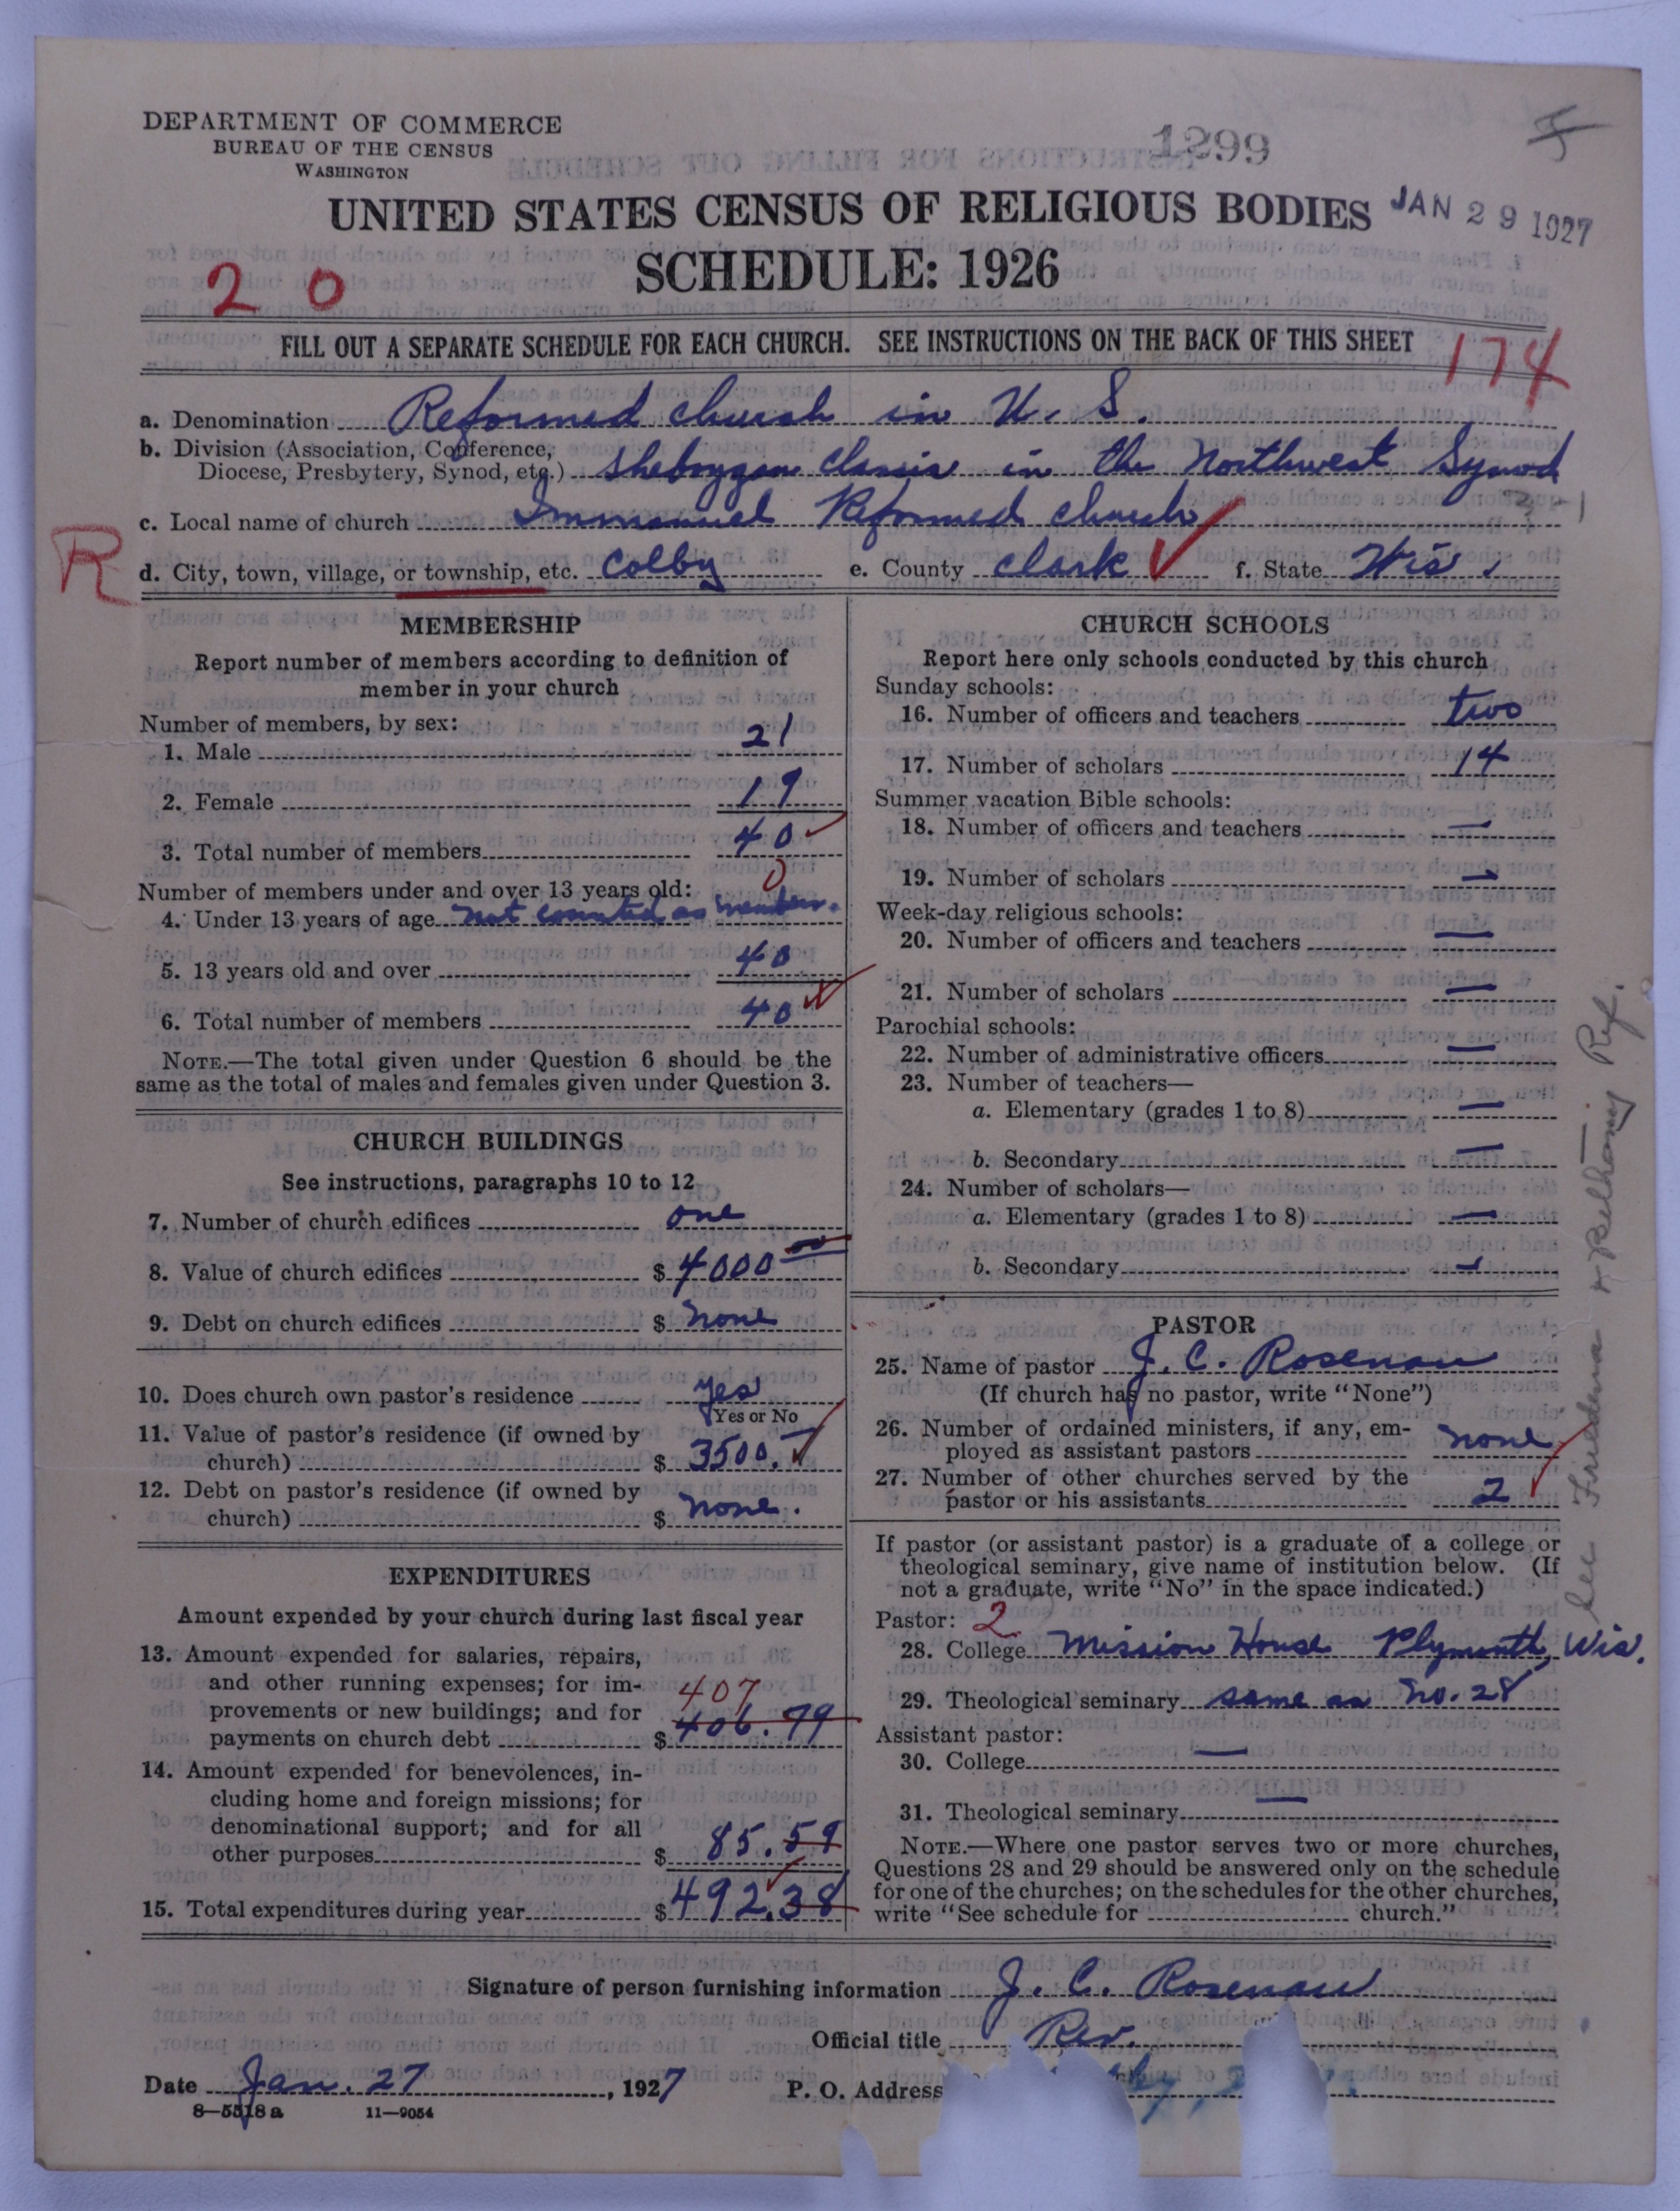 DEPARTMENT OF COMMERCE
BUREAU OF THE CENSUS
WASHINGTON
1299
UNITED STATES CENSUS OF RELIGIOUS BODIES
JAN 29 1927
SCHEDULE: 1926
20
FILL OUT A SEPARATE SCHEDULE FOR EACH CHURCH. SEE INSTRUCTIONS ON THE BACK OF THIS SHEET
174
a. Denomination Reformed church in U. S.
b. Division (Association, Conference,
Diocese, Presbytery, Synod, etc.) Sheboygan Classis in the Northwest Synod
c. Local name of church Immanuel Reformed church
R
d. City, town, village, or township, etc. Colby e. County Clark f. State Wis.
MEMBERSHIP
Report number of members according to definition of
member in your church
Number of members, by sex:
1. Male 21
2. Female 19
3. Total number of members 40
Number of members under and over 13 years old: 0
4. Under 13 years of age not counted as members.
5. 13 years old and over 40
6. Total number of members 40
NOTE.—The total given under Question 6 should be the
same as the total of males and females given under Question 3.
CHURCH BUILDINGS
See instructions, paragraphs 10 to 12
7. Number of church edifices one
8. Value of church edifices $ 4000 00
9. Debt on church edifices $ None
10. Does church own pastor's residence yes
Yes or No
11. Value of pastor's residence (if owned by
church) $ 3500.
12. Debt on pastor's residence (if owned by
church) $ none.
EXPENDITURES
Amount expended by your church during last fiscal year
13. Amount expended for salaries, repairs,
and other running expenses; for im-
407
provements or new buildings; and for
payments on church debt $ 406.79
14. Amount expended for benevolences, in-
cluding home and foreign missions; for
denominational support; and for all
other purposes $ 85.59
15. Total expenditures during year $ 492.38
CHURCH SCHOOLS
Report here only schools conducted by this church
Sunday schools:
16. Number of officers and teachers two
17. Number of scholars 14
Summer vacation Bible schools:
18. Number of officers and teachers —
19. Number of scholars —
Week-day religious schools:
20. Number of officers and teachers —
21. Number of scholars —
Parochial schools:
22. Number of administrative officers —
23. Number of teachers—
a. Elementary (grades 1 to 8) —
b. Secondary —
24. Number of scholars—
a. Elementary (grades 1 to 8) —
b. Secondary —
PASTOR
25. Name of pastor J. C. Rosenau
(If church has no pastor, write "None")
26. Number of ordained ministers, if any, em-
ployed as assistant pastors none
27. Number of other churches served by the
pastor or his assistants 2
If pastor (or assistant pastor) is a graduate of a college or
theological seminary, give name of institution below. (If
not a graduate, write "No" in the space indicated.)
Pastor: 2
28. College Mission House Plymouth, Wis.
29. Theological seminary same as No. 28
Assistant pastor:
30. College —
31. Theological seminary —
NOTE.—Where one pastor serves two or more churches,
Questions 28 and 29 should be answered only on the schedule
for one of the churches; on the schedules for the other churches,
write "See schedule for church."
See Friedena Ref.
Signature of person furnishing information J. C. Rosenau
Official title Rev.
Date Jan. 27, 1927 P. O. Address
8—5518 a 11—9054